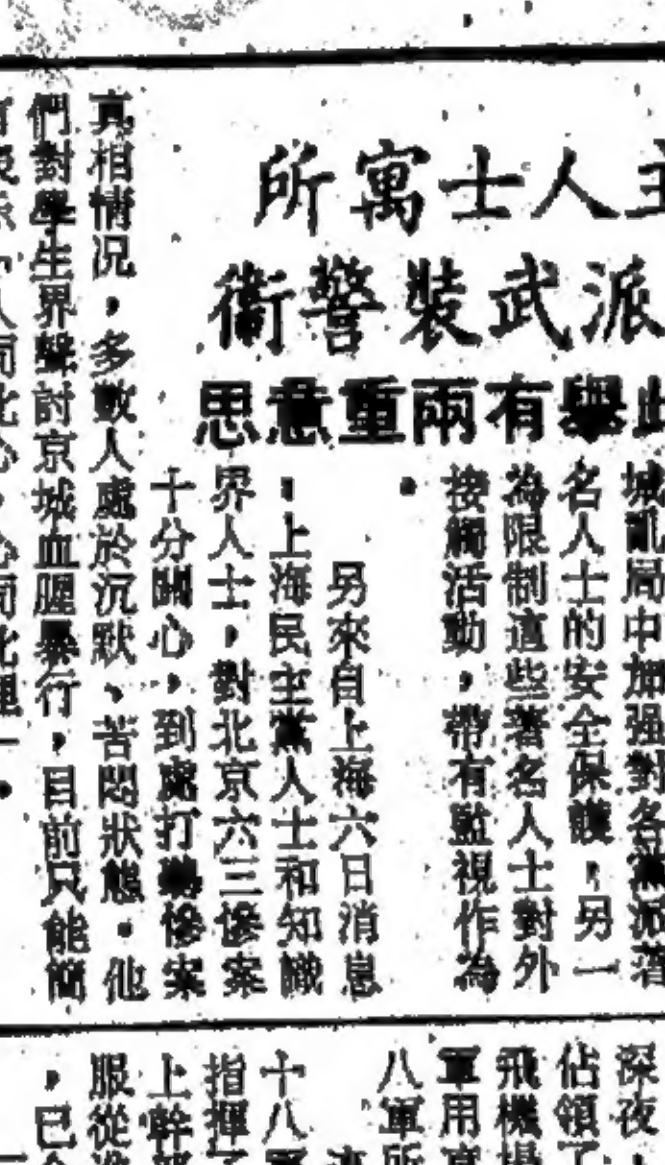 主人士寓所
派武裝警衞
此舉有兩重意思
城亂局中加强對各黨派著
名人士的安全保護,另一
為限制這些著名人士對外
接觸活動,帶有監視作為
。
另來自上海六日消息
:上海民主黨人士和知識
界人士,對北京六三慘案
十分關心,到處打聽慘案
真相情况,多數人處於沉默、苦悶狀態。他
們對學生界聲討京城血腥暴行,目前只能簡
「人同此心,心同此理」。
深夜,
佔領了
飛機場
軍用
八軍所
十八軍
指揮了
上幹部
服從
,已